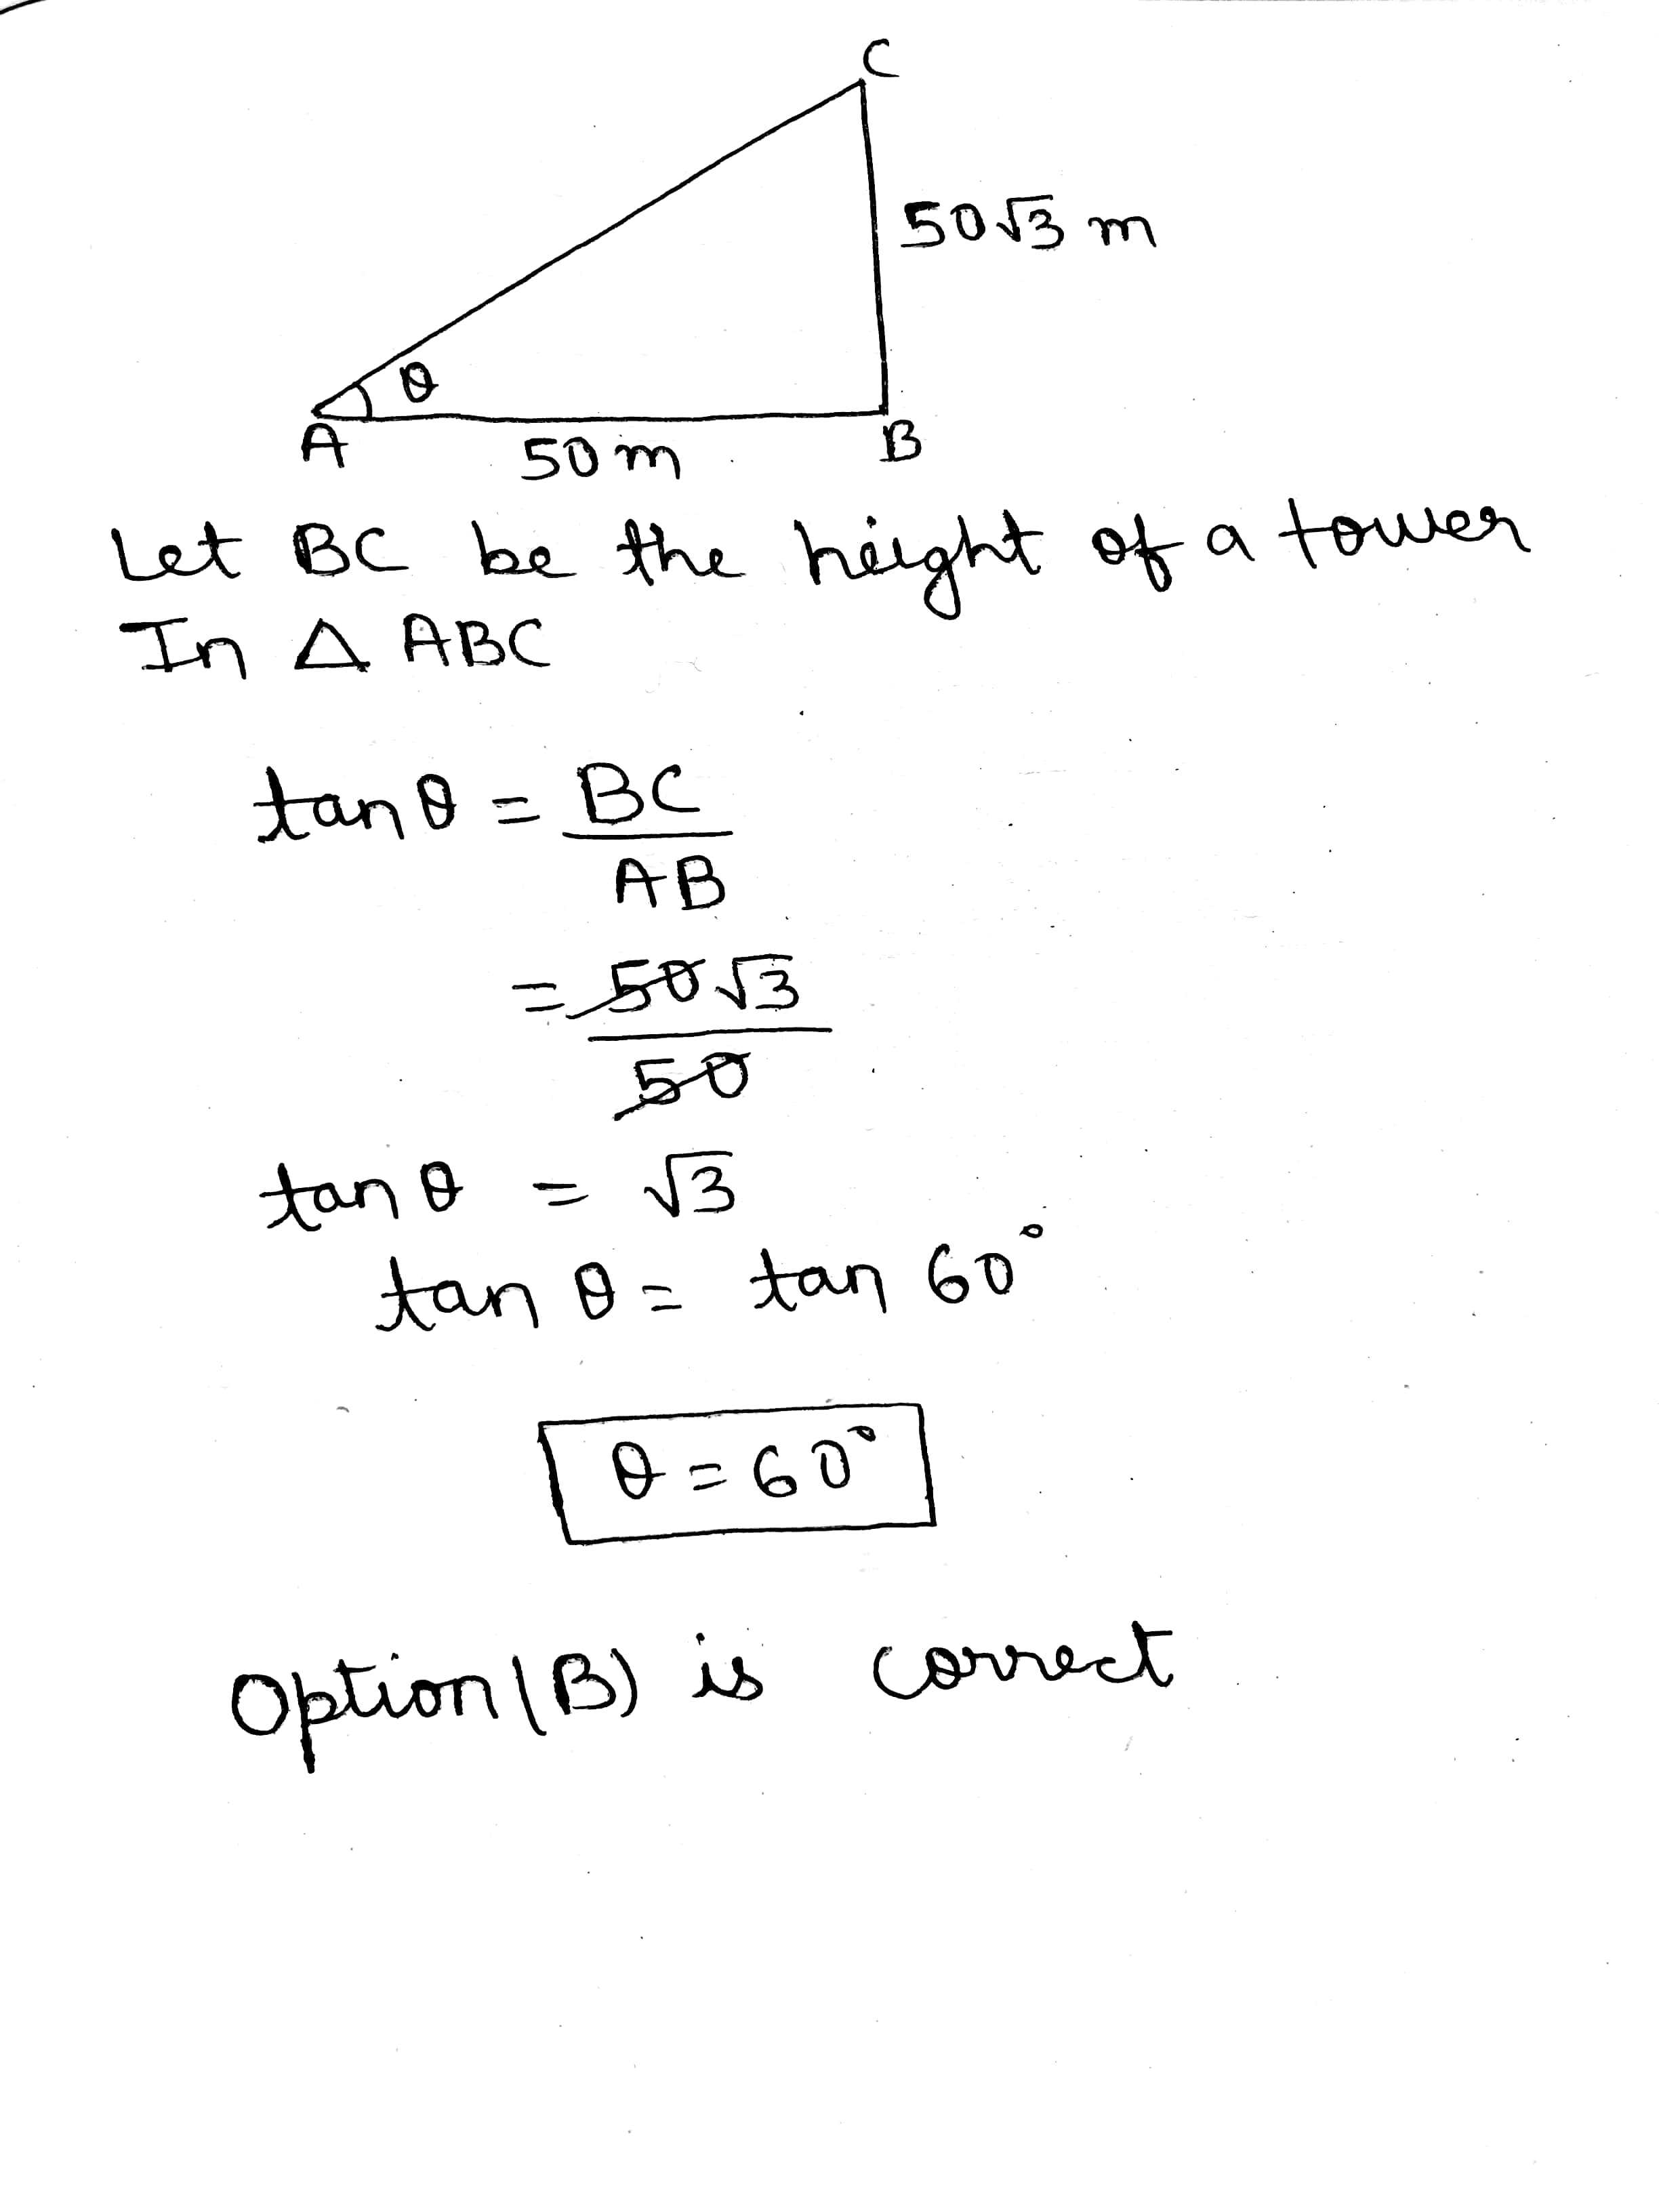 C
50√3 m
θ
A
B
50 m
Let BC be the height of a tower
In Δ ABC
tan θ = BC
AB
= 50√3
50
tan θ = √3
tan θ = tan 60°
θ = 60°
Option (B) is correct